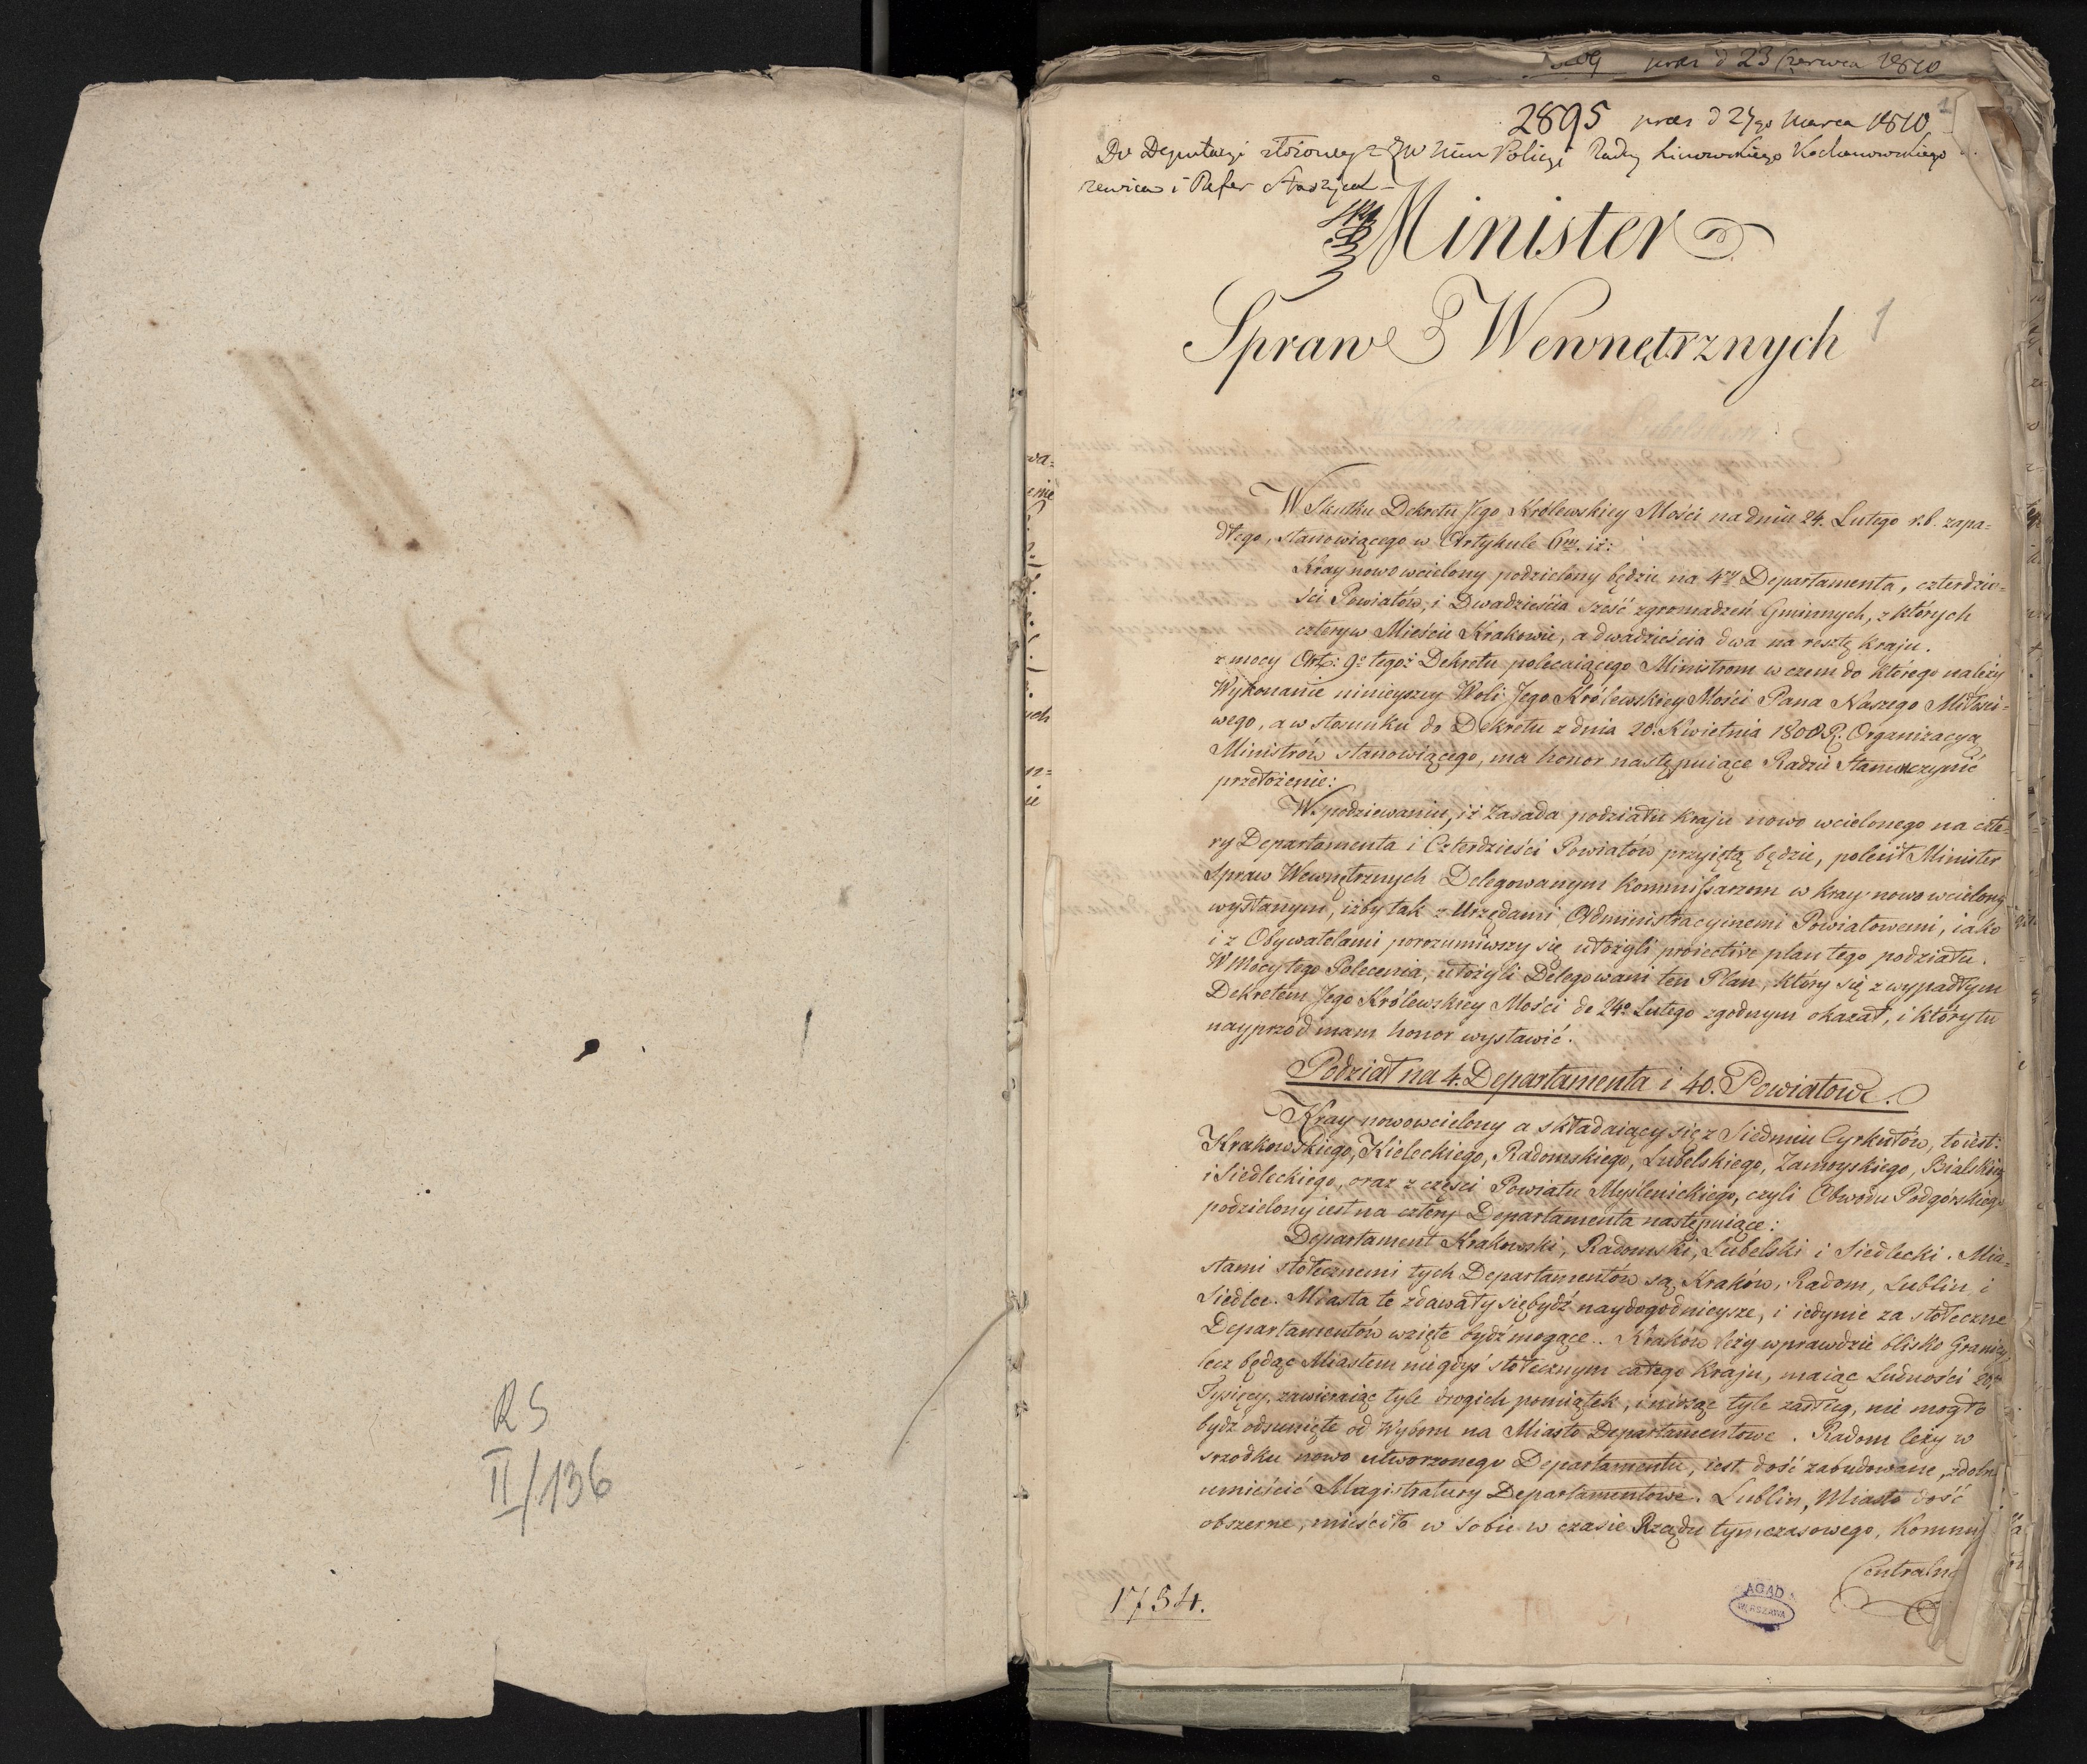 RS
II/136
prez d 23 Czerwca 1810
2895 prez d 27go Marca 1810
Do Deputacyi złożoney z JW Min Policyi Radcy Linowskiego Kochanowskiego
i Refer Staszyca
Minister
Spraw Wewnętrznych
1
W Skutku Dekretu Jego Królewskiey Mości na dniu 24. Lutego r.b. zapa=
dłego, stanowiącego w Artykule 6m. iż:
Kray nowo wcielony podzielony będzie na 4ry Departamenta, czterdzie=
ści Powiatów, i Dwadzieścia sześć zgromadzeń Gminnych, z których
cztery w Mieście Krakowie, a dwadzieścia dwa na resztę kraju.
z mocy Art: 9o tegoż Dekretu polecaiącego Ministrom w czem do którego należy
Wykonanie ninieyszey Woli Jego Królewskiey Mości Pana Naszego Miłości=
wego, a w stosunku do Dekretu z dnia 20. Kwietnia 1808 R. Organizacyą
Ministrów stanowiącego, ma honor następuiące Radzie Stanu uczynić
przełożenie:
W spodziewaniu, iż Zasada podziału kraju nowo wcielonego na czte=
ry Departamenta i Czterdzieści Powiatów przyiętą będzie, polecił Minister
Spraw Wewnętrznych Delegowanym Kommissarzom w kray nowo wcielony
wysłanym, iżby tak z Urzędami Administracyinemi Powiatowemi, iako
i z Obywatelami porozumiwszy się ułożyli proiective plan tego podziału.
W Mocy tego Polecenia, ułożyli Delegowani ten Plan, który się z wypadłym
Dekretem Jego Królewskiey Mości de 24o Lutego zgodnym okazał, i który tu
nayprzód mam honor wystawić.
Podział na 4. Departamenta i 40. Powiatow.
Kray nowowcielony a składaiący się z Siedmiu Cyrkułów, to iest:
Krakowskiego, Kieleckiego, Radomskiego, Lubelskiego, Zamoyskiego, Bialskiego
i Siedleckiego, oraz z części Powiatu Myślenickiego, czyli Obwodu Podgórskiego
podzielony iest na cztery Departamenta następuiące:
Departament Krakowski, Radomski, Lubelski i Siedlecki. Mia=
stami stołecznemi tych Departamentów są, Kraków, Radom, Lublin, i
Siedlce. Miasta te zdawały się bydź naydogodnieysze, i iedynie za stołeczne
Departamentów wzięte bydź mogące.. Kraków leży wprawdzie blisko Granicy
lecz będąc Miastem niegdyś stołecznym całego kraju, maiąc Ludności
Tysięcy, zawieraiąc tyle drogich pomiątek, i niosąc tyle zasług, nie mogło
bydź odsunięte od Wyboru na Miasto Departamentowe. Radom leży w
srzodku nowo utworzonego Departamentu, iest dość zabudowane, zdolne
umieścić Magistratury Departamentowe. Lublin, Miasto dość
obszerne, mieściło w Sobie w czasie Rządu tymczasowego,
Centralną
1734.
AGAD
WARSZAWA